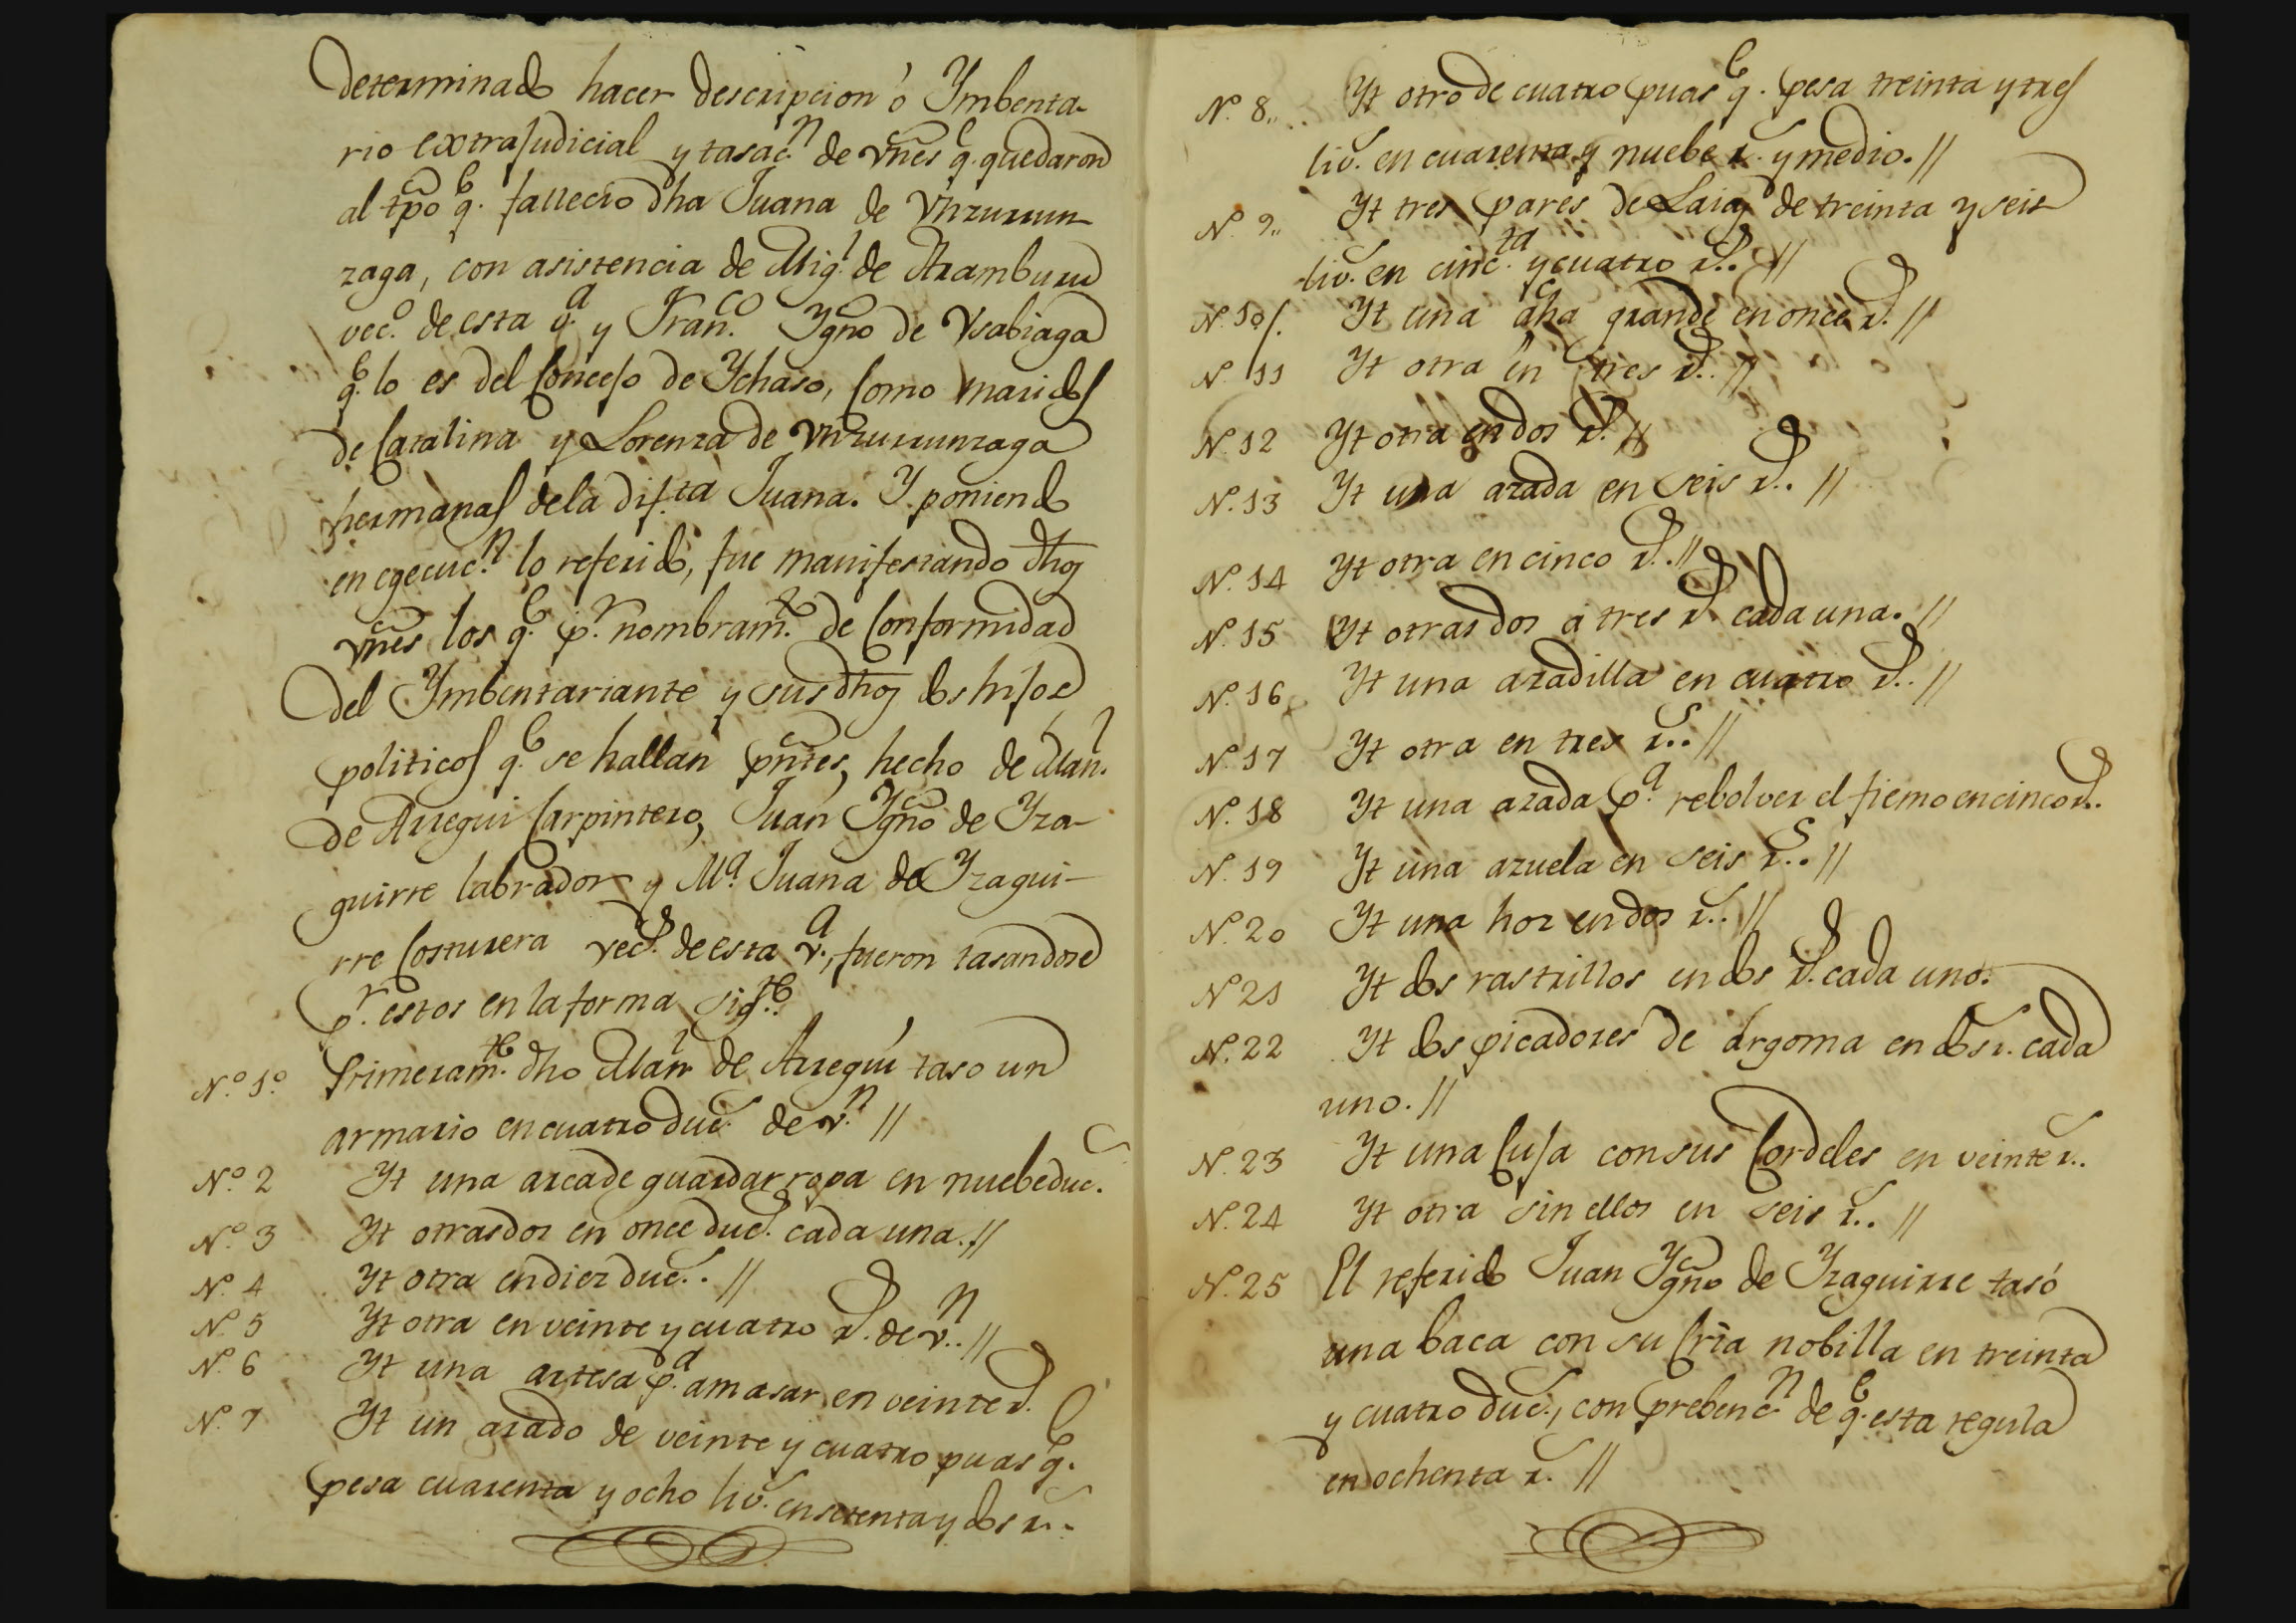 determinado hacer descripcion ó Ymbenta-
rio extrajudicial y tasac.n de vnes q.e quedaron
al tpo q.e fallecio dha Juana de Vnzurrun-
zaga, con asistencia de Mig.l de Aramburu
vec.o de esta v.a y Fran.co Ygno de Vsabiaga
q.e lo es del Concejo de Ychaso, Como maridos
de Catalina y Lorenza de Vnzurrunzaga
hermanas de la dif.ta Juana. Y poniendo
en egecuc.n lo referido, fue manifestando dhos
vnes los q.e p.r nombram.to de Conformidad
del Ymbentariante y sus dhos dos hijos
politicos q.e se hallan pntes, hecho de Man.l
de Arregui Carpintero, Juan Ygno de Yza-
guirre labrador y M.a Juana de Yzagui-
rre Costurera vec.s de esta v.a, fueron tasandose
p.r estos en la forma sig.te
N.o 1.o Primeram.te dho Man.l de Arregui taso un
armario en cuatro duc.s de v.n //
N.o 2 Yt una arca de guardar ropa en nuebe duc.s
N.o 3 Yt otras dos en once duc.s cada una. //
N.o 4 Yt otra en diez duc.s //
N.o 5 Yt otra en veinte y cuatro r.s de v.n //
N.o 6 Yt una artesa p.a amasar en veinte r.s
N.o 7 Yt un arado de veinte y cuatro puas q.e
pesa cuarenta y ocho liv.s en setenta y dos r.s
N.o 8 Yt otro de cuatro puas q.e pesa treinta y tres
liv.s en cuarenta y nuebe r.s y medio. //
N.o 9 Yt tres pares de Laias de treinta y seis
liv.s en cinc.ta y cuatro r.s //
N.o 10 Yt una acha grande en once r.s //
N.o 11 Yt otra en tres r.s //
N.o 12 Yt otra en dos r.s //
N.o 13 Yt una azada en seis r.s //
N.o 14 Yt otra en cinco r.s //
N.o 15 Yt otras dos á tres r.s cada una. //
N.o 16 Yt una azadilla en cuatro r.s //
N.o 17 Yt otra en tres r.s //
N.o 18 Yt una azada p.a rebolver el fiemo en cinco r.s
N.o 19 Yt una azuela en seis r.s //
N.o 20 Yt una hoz en dos r.s //
N.o 21 Yt dos rastrillos en dos r.s cada uno.
N.o 22 Yt dos picadores de Argoma en dos r.s cada
uno. //
N.o 23 Yt una Cuja con sus Cordeles en veinte r.s
N.o 24 Yt otra sin ellos en seis r.s //
N.o 25 El referido Juan Ygno de Yzaguirre tasó
una baca con su Cria nobilla en treinta
y cuatro duc.s, con prebenc.n de q.e esta regula
en ochenta r.s //